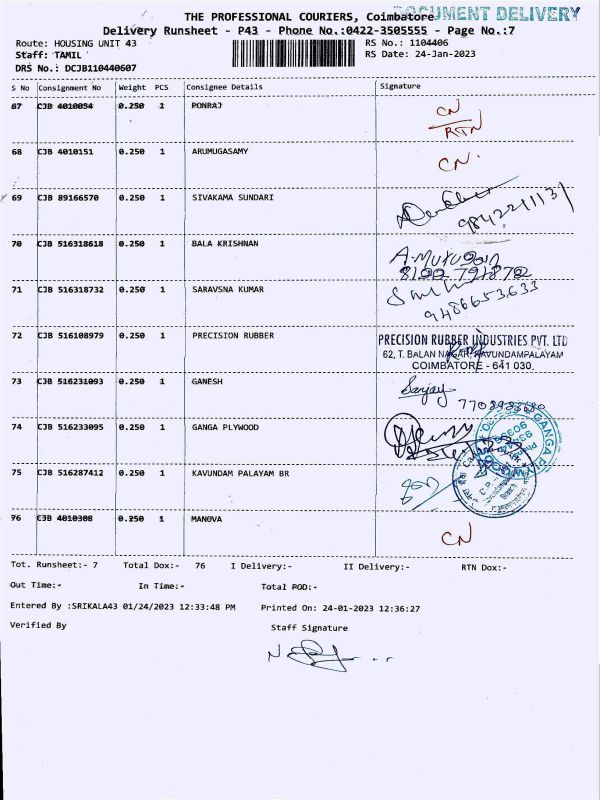 THE PROFESSIONAL COURIERS, Coimbatore DOCUMENT DELIVERY
Delivery Runsheet - P43 - Phone No.:0422-3505555 - Page No.:7
Route: HOUSING UNIT 43 RS No.: 1104406
Staff: TAMIL RS Date: 24-Jan-2023
DRS No.: DCJB110440607
S No Consignment No Weight PCS Consignee Details Signature
67 CJB 4010054 0.250 1 PONRAJ CN
RTN
68 CJB 4010151 0.250 1 ARUMUGASAMY CN.
69 CJB 89166570 0.250 1 SIVAKAMA SUNDARI
9842211131
70 CJB 516318618 0.250 1 BALA KRISHNAN A.Murugan
71 CJB 516318732 0.250 1 SARAVSNA KUMAR
9486653633
72 CJB 516108979 0.250 1 PRECISION RUBBER PRECISION RUBBER INDUSTRIES PVT. LTD
62, T. BALAN NAGAR, KAVUNDAMPALAYAM
COIMBATORE - 641 030.
73 CJB 516231093 0.250 1 GANESH Sanjay
74 CJB 516233095 0.250 1 GANGA PLYWOOD
GANGA PLYWOOD
75 CJB 516287412 0.250 1 KAVUNDAM PALAYAM BR
76 CJB 4010308 0.250 1 MANOVA CN
Tot. Runsheet:- 7 Total Dox:- 76 I Delivery:- II Delivery:- RTN Dox:-
Out Time:- In Time:- Total POD:-
Entered By :SRIKALA43 01/24/2023 12:33:48 PM Printed On: 24-01-2023 12:36:27
Verified By Staff Signature